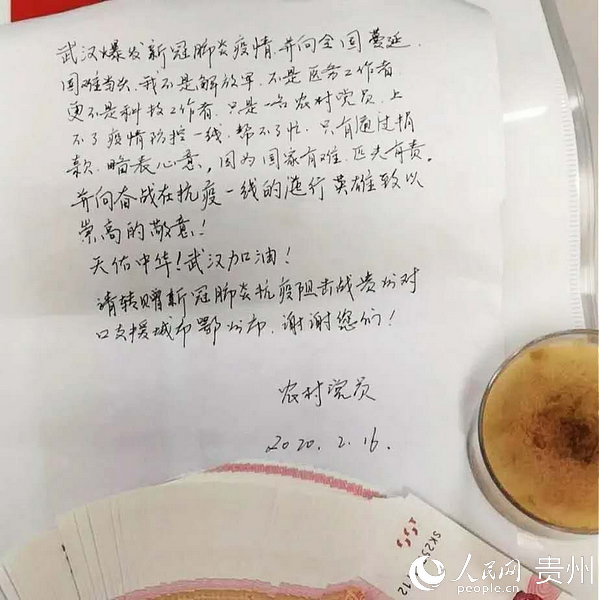 武汉爆发新冠肺炎疫情.并向全国蔓延.
国难当头.我不是解放军.不是医务工作者.
更不是科技工作者.只是一名农村党员.上
不了疫情防控一线.帮不了忙.只有通过捐
款.略表心意，因为国家有难.匹夫有责。
并向奋战在抗疫一线的逆行英雄致以
崇高的敬意！
天佑中华！武汉加油！
请转赠新冠肺炎抗疫阻击战贵州对
口支援城市鄂州市.谢谢您们！
农村党员
2020.2.16.
SK23
12
人民网 贵州
people.cn